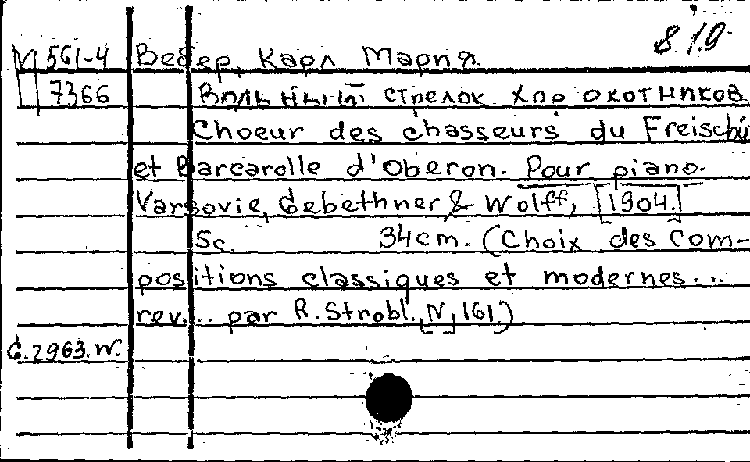 8.19.
М 561-4 Вебер, Карл Мария.
7366 Вольный стрелок. Хор охотников
Choeur des chasseurs du Freischü
et Barcarolle d'Oberon. Pour piano.
Varsovie, Gebethner & Wolff, [1904.]
Sc. 34cm. (Choix des com-
positions classiques et modernes...
rev... par R. Strobl. [N] 161.)
G. 2963. W.